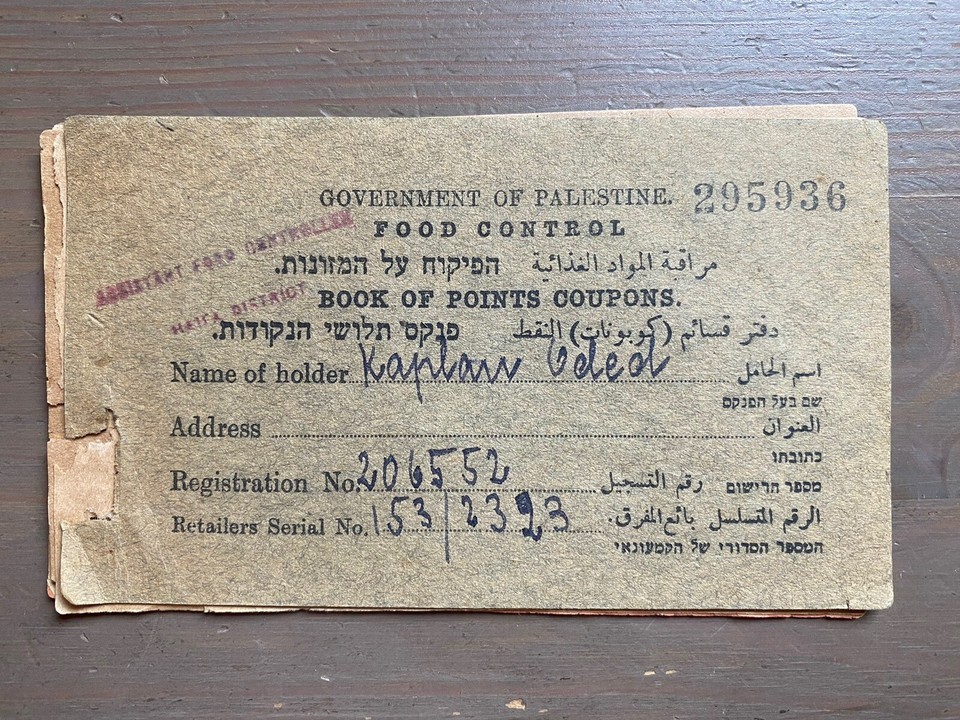 GOVERNMENT OF PALESTINE. 295936
FOOD CONTROL
ASSISTANT FOOD CONTROLLER
HAIFA DISTRICT
הפיקוח על המזונות. مراقبة المواد الغذائية
BOOK OF POINTS COUPONS.
פנקס תלושי הנקודות. دفتر قسائم (كوبونات) النقط
Name of holder Kaplan Oded اسم الحامل
שם בעל הפנקס
Address العنوان
כתובתו
Registration No. 206552 رقم التسجيل מספר הרישום
Retailers Serial No. 153/2323 الرقم المتسلسل بائع المفرق.
המספר הסדורי של הקמעונאי